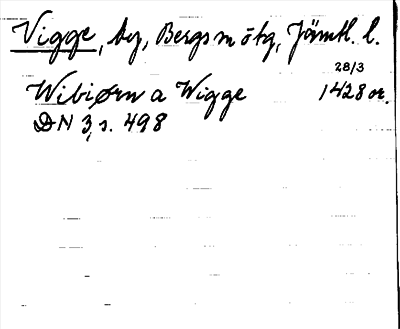 Vigge, by, Bergs m ötg, Jämtl. l.
28/3
Wibiørn a Wigge 1428 or.
DN 3, s. 498